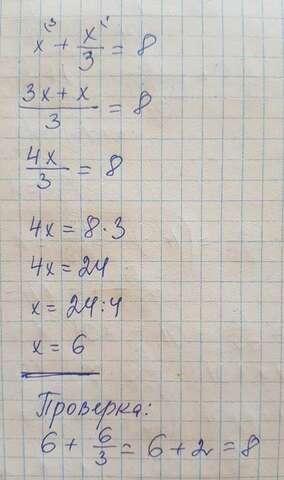 x³ + x¹/3 = 8
3x + x/3 = 8
4x/3 = 8
4x = 8 · 3
4x = 24
x = 24 : 4
x = 6
Проверка:
6 + 6/3 = 6 + 2 = 8